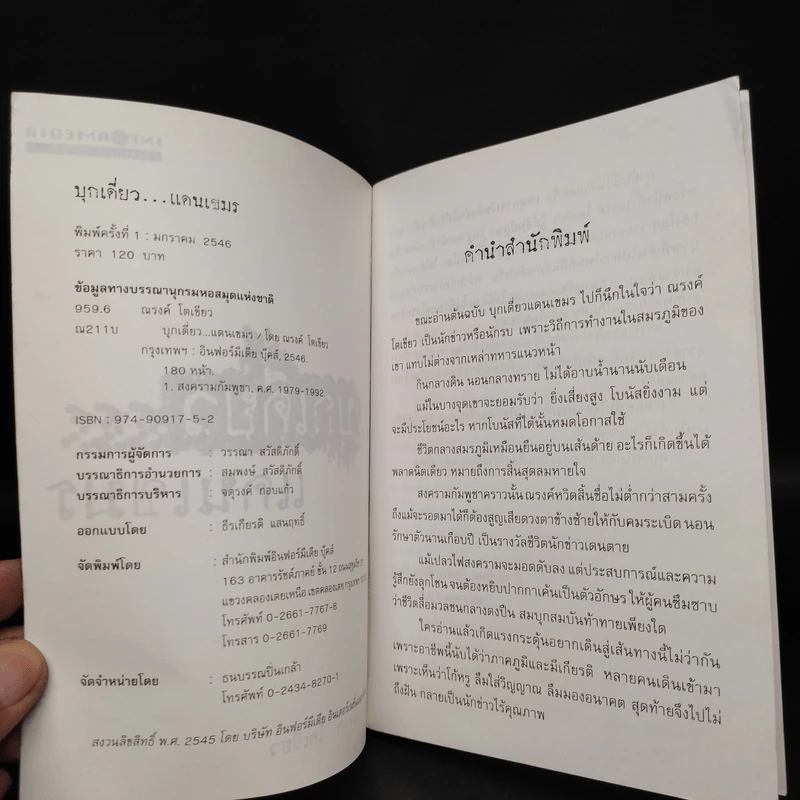 INFORMEDIA
บุกเดี่ยว...แดนเขมร
พิมพ์ครั้งที่ 1 : มกราคม 2546
ราคา 120 บาท
ข้อมูลทางบรรณานุกรมหอสมุดแห่งชาติ
959.6 ณรงค์ โตเขียว
ณ211บ บุกเดี่ยว...แดนเขมร / โดย ณรงค์ โตเขียว
กรุงเทพฯ : อินฟอร์มีเดีย บุ๊คส์, 2546.
180 หน้า.
1. สงครามกัมพูชา, ค.ศ. 1979-1992.
ISBN : 974-90917-5-2
กรรมการผู้จัดการ : วรรณา สวัสดิภักดิ์
บรรณาธิการอำนวยการ : สมพงษ์ สวัสดิภักดิ์
บรรณาธิการบริหาร : จตุรงค์ กอบแก้ว
ออกแบบโดย : ธีรเกียรติ แสนฤทธิ์
จัดพิมพ์โดย : สำนักพิมพ์อินฟอร์มีเดีย บุ๊คส์
163 อาคารรัชต์ภาคย์ ชั้น 12 ถนนสุขุมวิท
แขวงคลองเตยเหนือ เขตคลองเตย กรุงเทพฯ
โทรศัพท์ 0-2661-7767-8
โทรสาร 0-2661-7769
จัดจำหน่ายโดย : ธนบรรณปิ่นเกล้า
โทรศัพท์ 0-2434-8270-1
สงวนลิขสิทธิ์ พ.ศ. 2545 โดย บริษัท อินฟอร์มีเดีย
คำนำสำนักพิมพ์
ขณะอ่านต้นฉบับ บุกเดี่ยวแดนเขมร ไปก็นึกในใจว่า ณรงค์
โตเขียว เป็นนักข่าวหรือนักรบ เพราะวิถีการทำงานในสมรภูมิของ
เขา แทบไม่ต่างจากเหล่าทหารแนวหน้า
กินกลางดิน นอนกลางทราย ไม่ได้อาบน้ำนานนับเดือน
แม้ในบางจุดเขาจะยอมรับว่า ยิ่งเสี่ยงสูง โบนัสยิ่งงาม แต่
จะมีประโยชน์อะไร หากโบนัสที่ได้นั้นหมดโอกาสใช้
ชีวิตกลางสมรภูมิเหมือนยืนอยู่บนเส้นด้าย อะไรก็เกิดขึ้นได้
พลาดนิดเดียว หมายถึงการสิ้นสุดลมหายใจ
สงครามกัมพูชาคราวนั้น ณรงค์หวิดสิ้นชื่อไม่ต่ำกว่าสามครั้ง
ถึงแม้จะรอดมาได้ก็ต้องสูญเสียดวงตาข้างซ้ายให้กับคมระเบิด นอน
รักษาตัวนานเกือบปี เป็นรางวัลชีวิตนักข่าวเดนตาย
แม้เปลวไฟสงครามจะมอดดับลง แต่ประสบการณ์และความ
รู้สึกยังลุกโชน จนต้องหยิบปากกาเค้นเป็นตัวอักษร ให้ผู้คนซึมซาบ
ว่าชีวิตสื่อมวลชนกลางดงปืน สมบุกสมบันท้าทายเพียงใด
ใครอ่านแล้วเกิดแรงกระตุ้นอยากเดินสู่เส้นทางนี้ไม่ว่ากัน
เพราะอาชีพนี้นับได้ว่าภาคภูมิและมีเกียรติ หลายคนเดินเข้ามา
เพราะเห็นว่าโก้หรู ลืมใส่วิญญาณ ลืมมองอนาคต สุดท้ายจึงไปไม่
ถึงฝัน กลายเป็นนักข่าวไร้คุณภาพ